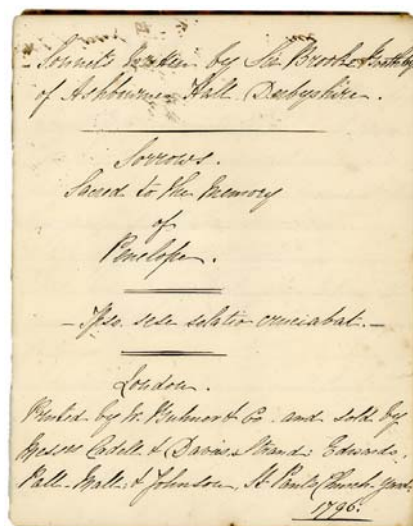 Sonnets written by Sir Brooke Boothby
of Ashbourne Hall Derbyshire.
Sorrows.
Sacred to the Memory
of
Penelope.
- Ipso sese solatio cruciabat. -
London.
Printed by W. Bulmer & Co. and sold by
Messrs Cadell & Davies, Strand: Edwards,
Pall-Mall: & Johnson, St Pauls Church-yard.
1796.